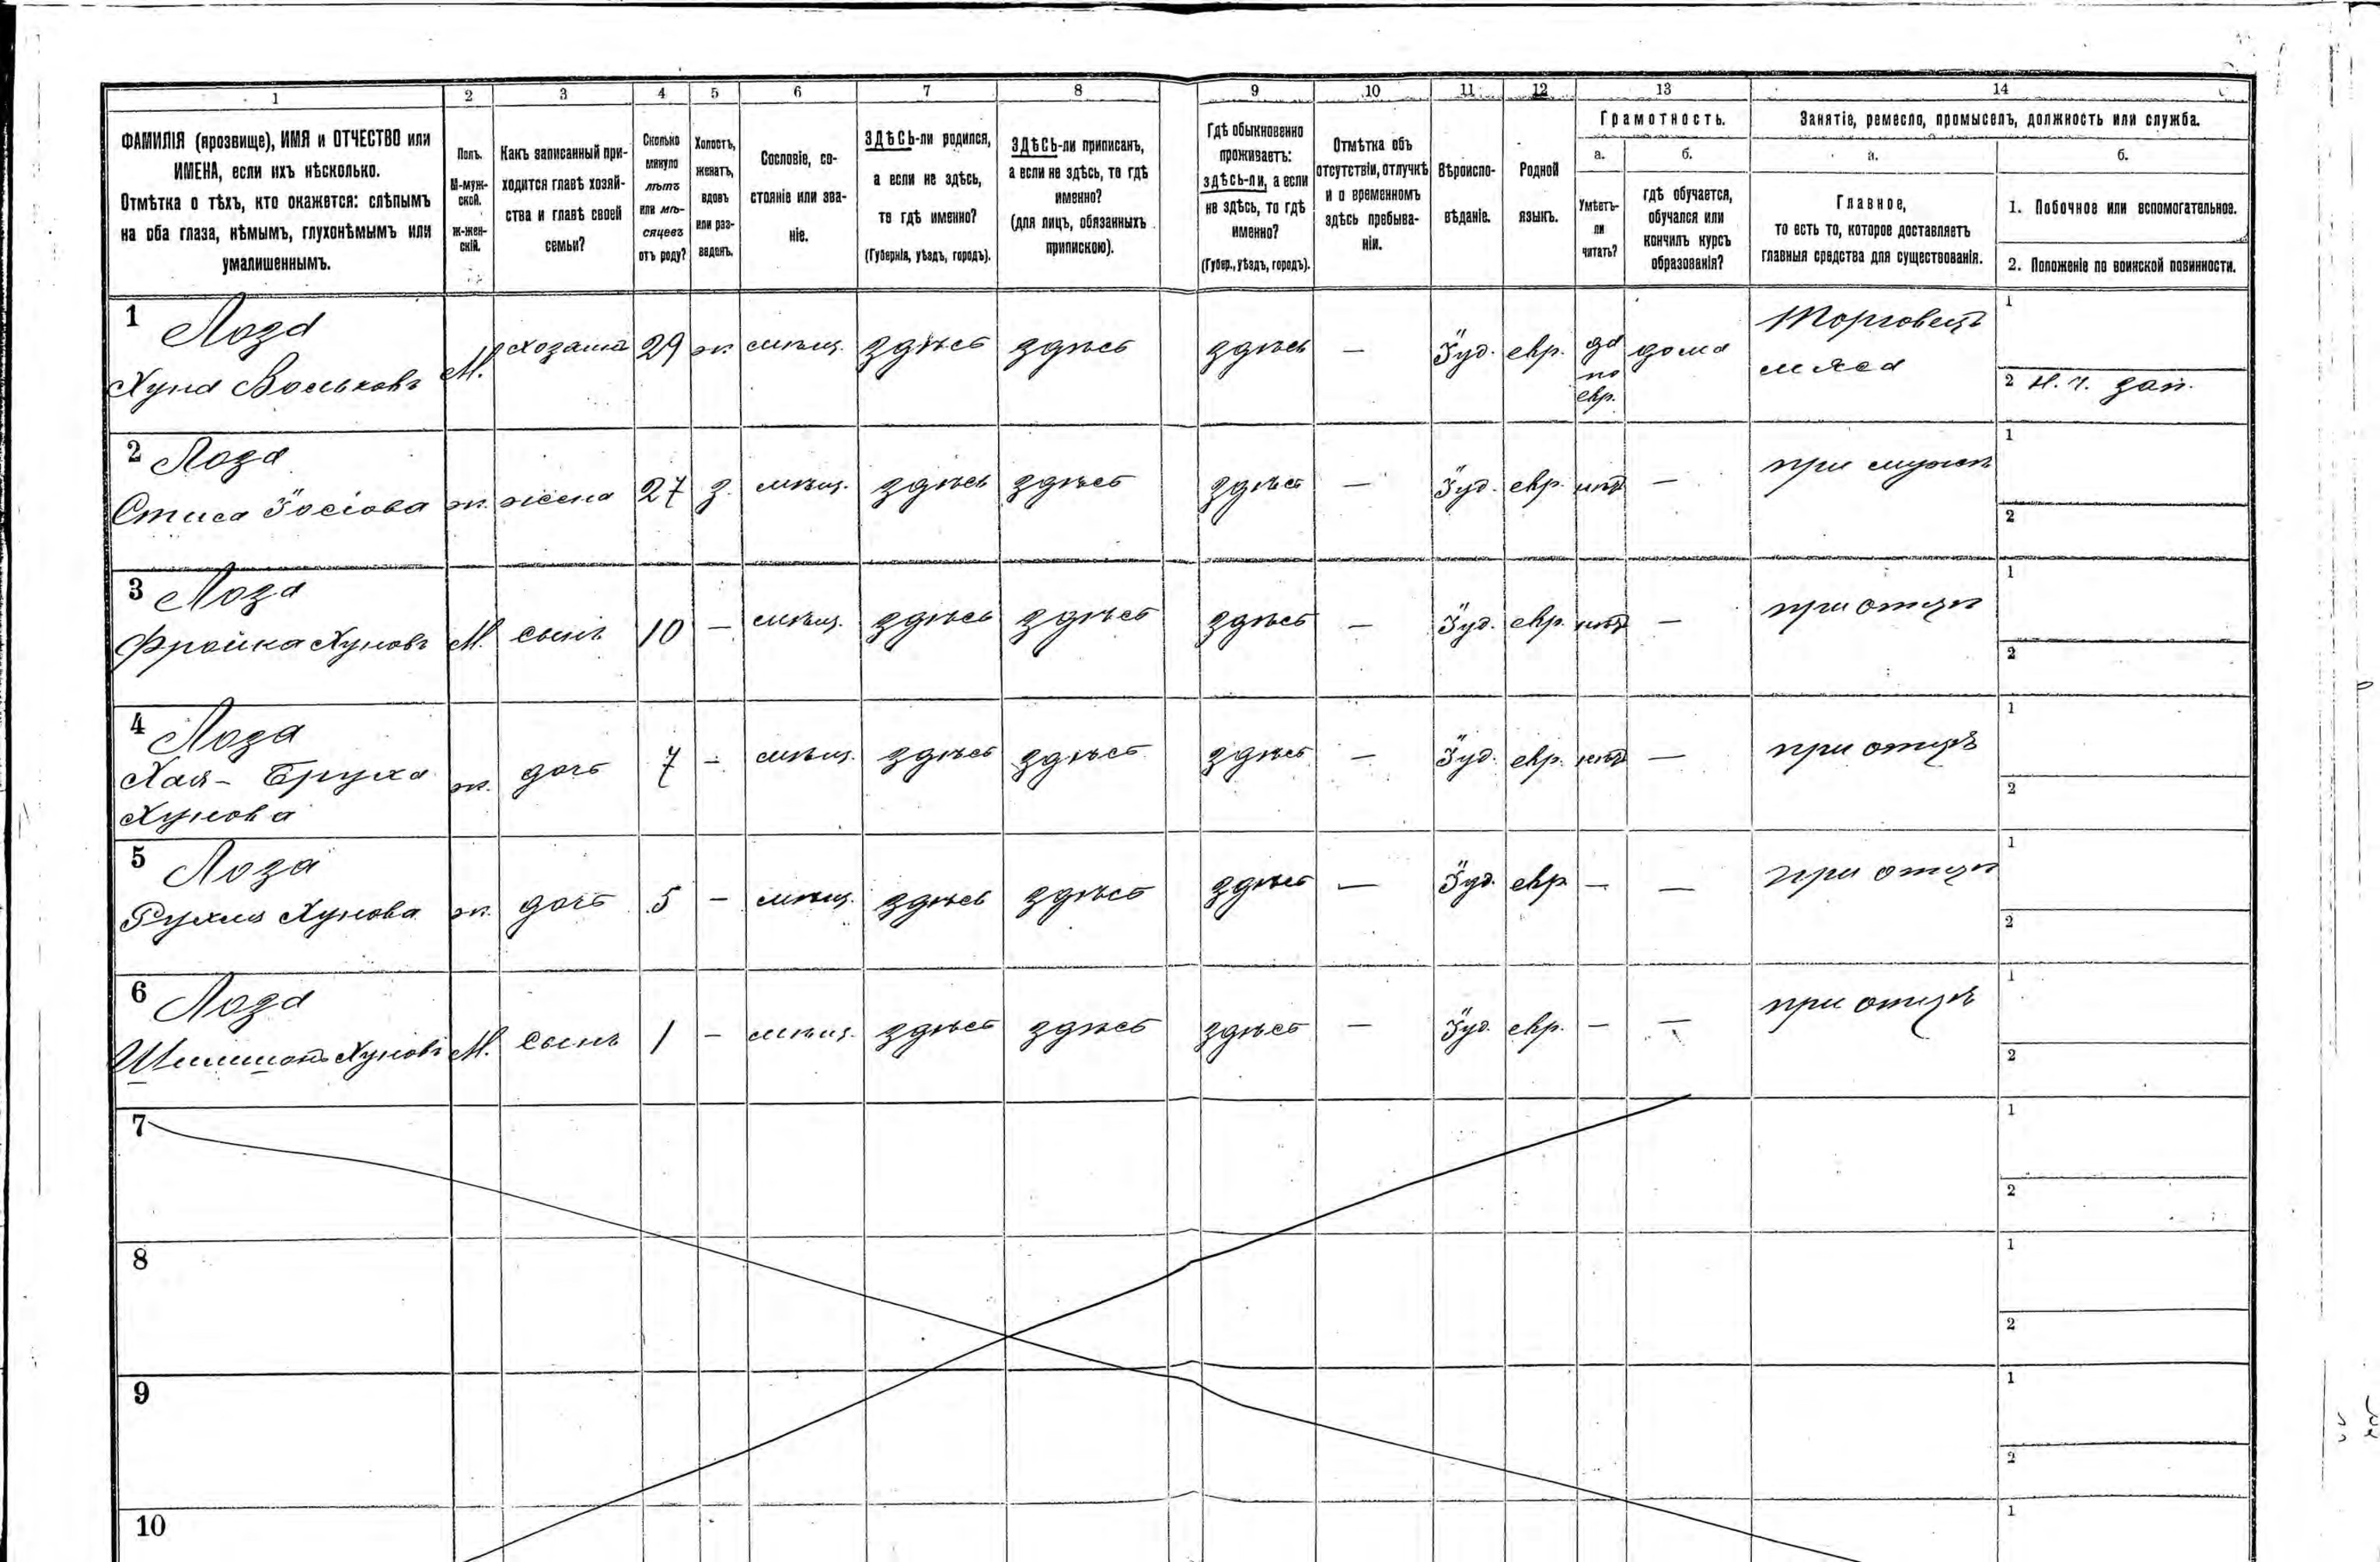 1 2 3 4 5 6 7 8 9 10 11 12 13 14
ФАМИЛІЯ (прозвище), ИМЯ и ОТЧЕСТВО или
ИМЕНА, если ихъ нѣсколько.
Отмѣтка о тѣхъ, кто окажется: слѣпымъ
на оба глаза, нѣмымъ, глухонѣмымъ или
умалишеннымъ.
Полъ.
М-муж-
ской.
Ж-жен-
скій.
Какъ записанный при-
ходится главѣ хозяй-
ства и главѣ своей
семьи?
Сколько
минуло
лѣтъ
или мѣ-
сяцевъ
отъ роду?
Холостъ,
женатъ,
вдовъ
или раз-
веденъ.
Сословіе, со-
стояніе или зва-
ніе.
ЗДѢСЬ-ли родился,
а если не здѣсь,
то гдѣ именно?
(Губернія, уѣздъ, городъ).
ЗДѢСЬ-ли приписанъ,
а если не здѣсь, то гдѣ
именно?
(для лицъ, обязанныхъ
припискою).
Гдѣ обыкновенно
проживаетъ:
здѣсь-ли, а если
не здѣсь, то гдѣ
именно?
(Губер., уѣздъ, городъ).
Отмѣтка объ
отсутствіи, отлучкѣ
и о временномъ
здѣсь пребыва-
ніи.
Вѣроиспо-
вѣданіе.
Родной
языкъ.
Грамотность.
а.
Умѣетъ-
ли
читать?
б.
гдѣ обучается,
обучался или
кончилъ курсъ
образованія?
Занятіе, ремесло, промыселъ, должность или служба.
а.
Главное,
то есть то, которое доставляетъ
главныя средства для существованія.
б.
1. Побочное или вспомогательное.
2. Положеніе по воинской повинности.
1 Лоза
Хуна Вольковъ М. хозяинъ 29 ж. мѣщ. здѣсь здѣсь здѣсь — Іуд. евр. да по евр. дома Торговецъ мяса 1
2 н. ч. зап.
2 Лоза
Стиса Іосіова ж. жена 27 з. мѣщ. здѣсь здѣсь здѣсь — Іуд. евр. нѣтъ — при мужѣ 1
2
3 Лоза
Фройка Хуновъ М. сынъ 10 — мѣщ. здѣсь здѣсь здѣсь — Іуд. евр. нѣтъ — при отцѣ 1
2
4 Лоза
Хая- Бруха
Хунова ж. дочь 7 — мѣщ. здѣсь здѣсь здѣсь — Іуд. евр. нѣтъ — при отцѣ 1
2
5 Лоза
Рухля Хунова ж. дочь 5 — мѣщ. здѣсь здѣсь здѣсь — Іуд. евр — — при отцѣ 1
2
6 Лоза
Хуновъ М. сынъ 1 — мѣщ. здѣсь здѣсь здѣсь — Іуд. евр. — — при отцѣ 1
2
7 1
2
8 1
2
9 1
2
10 1